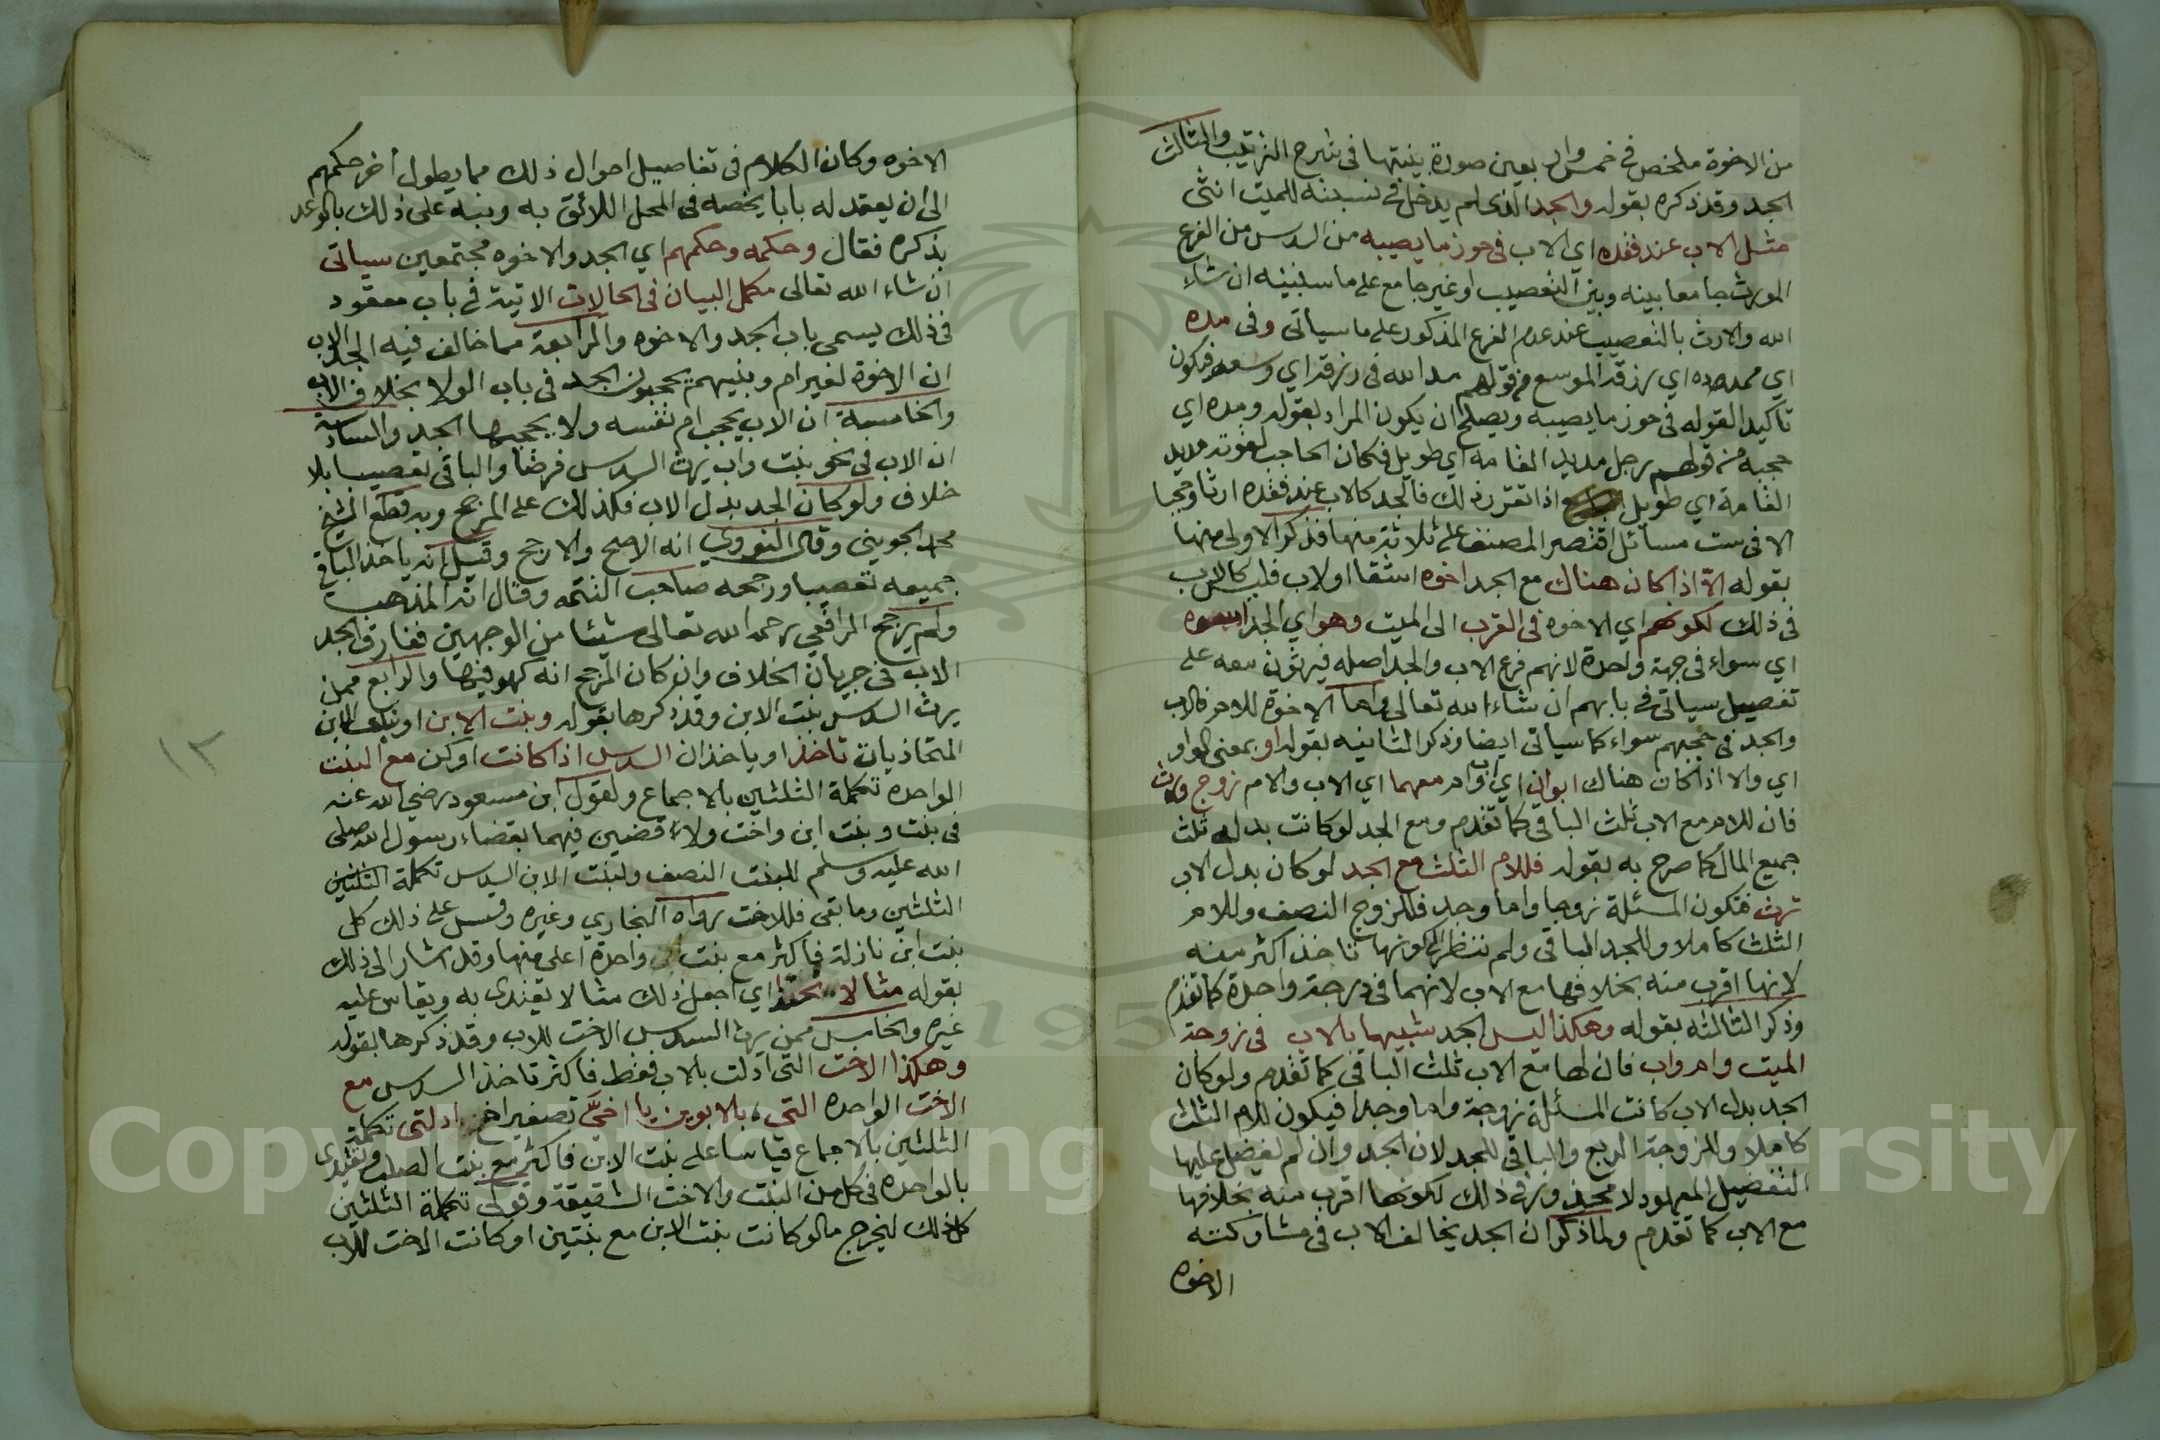 من الاخوة ملخص في خمس واربعين صورة بينتها في شرح الترتيب والثالث
الجد وقد ذكره بقوله والجد الذي لم يدخل في نسبته للميت انثى
مثل الاب عند فقده اي الاب في حوز ما يصيبه من السدس من الفرع
الموروث جامعا بينه وبين التعصيب او غير جامع على ما سنبينه ان شاء
الله والارث بالتعصيب عند عدم الفرع المذكور على ما سياتي وفي مده
اي ممدده اي رزقه الموسع من قولهم مد الله في رزقه اي وسعه فيكون
تاكيدا لقوله في حوز ما يصيبه ويصلح ان يكون المراد بقوله ومده اي
حجبه من قولهم رجل مديد القامة اي طويل فكان الحاجب لقوته مديد
القامة اي طويل اذا تقرر ذلك فالجد كالاب عند فقده ارثا وحجبا
الا في ست مسائل اقتصر المصنف على ثلاثة منها فذكر الاولى منها
بقوله الا اذا كان هناك مع الجد اخوه اشقا او لاب فليس كالاب
في ذلك لكونهم اي الاخوه في القرب الى الميت وهو اي الجد اسوه
اي سواء في جهة واحدة لانهم فرع الاب والجد اصله فيرثون معه على
تفصيل سياتي في بابهم ان شاء الله تعالى واما الاخوة للام فالاب
والجد في حجبهم سواء كما سياتي ايضا وذكر الثانيه بقوله او بمعنى الواو
اي والا اذا كان هناك ابوان اي اب وام معهما اي الاب والام زوج ورث
فان للام مع الاب ثلث الباقي كما تقدم ومع الجد لو كانت بدله ثلث
جميع المال كما صرح به بقوله فللام الثلث مع الجد لو كان بدل الاب
ترث فتكون المسئلة زوجا واما وجد فللزوج النصف وللام
الثلث كاملا وللجد الباقي ولم ننظر الى كونها تاخذ اكثر منه
لانها اقرب منه بخلافها مع الاب لانهما في درجة واحدة كما تقدم
وذكر الثالثه بقوله وهكذا ليس الجد شبيها بالاب في زوجة
الميت وام واب فان لها مع الاب ثلث الباقي كما تقدم ولو كان
الجد بدل الاب كانت المسئلة زوجة واما وجدا فيكون للام الثلث
كاملا وللزوجة الربع والباقي للجد لان الجد وان لم يفضل عليها
التفضيل المعهود لا محذور في ذلك لكونها اقرب منه بخلافها
مع الاب كما تقدم ولما ذكر ان الجد يخالف الاب في مشاركته
الاخوه
الاخوه وكان الكلام في تفاصيل احوال ذلك مما يطول أخر حكمهم
الى ان يعقد له بابا يخصه في المحل اللائق به وبنبه على ذلك بالوعد
بذكره فقال وحكمه وحكمهم اي الجد والاخوه مجتمعين سياتى
ان شاء الله تعالى مكمل البيان في الحالات الاتية في باب معقود
في ذلك يسمى باب الجد والاخوه والرابعة مما خالف فيه الجد الاب
ان الاخوة لغير ام وبنيهم يحجبون الجد في باب الولا بخلاف الاب
والخامسة ان الاب يحجب ام نفسه ولا يحجبها الجد والسادسة
ان الاب في نحو بنت واب يرث السدس فرضا والباقي تعصيبا بلا
خلاف ولو كان الجد بدل الاب فكذلك على المرجح وبه قطع الشيخ
محمد الجويني وقال النووي انه الاصح والارجح وقيل انه ياخذ الباقي
جميعه تعصيبا ورجحه صاحب التتمه وقال انه المذهب
ولم يرجح الرافعي رحمه الله تعالى شيئا من الوجهين ففارق الجد
الاب في جريان الخلاف وان كان المرجح انه كهو فيها والرابع ممن
يرث السدس بنت الابن وقد ذكرها بقوله وبنت الابن او بنات الابن
المتحاذيات تاخذ او ياخذان السدس اذا كانت او كن مع البنت
الواحده تكملة الثلثين بالاجماع ولقول ابن مسعود رضي الله عنه
في بنت وبنت ابن واخت ولأقضين فيهما بقضاء رسول الله صلى
الله عليه وسلم للبنت النصف ولبنت الابن السدس تكملة الثلثين
الثلثين وما بقي فللاخت رواه البخاري وغيره وقس على ذلك كل
بنت ابن نازلة فاكثر مع بنت ابن واحدة اعلى منها وقد اشار الى ذلك
بقوله مثالا يحتذا اي اجعل ذلك مثالا يقتدى به ويقاس عليه
غيره والخامس ممن يرث السدس الاخت للاب وقد ذكرها بقوله
وهكذا الاخت التي ادلت بالاب فقط فاكثر تاخذ السدس مع
الاخت الواحده التي بالابوين يا اخيَّ تصغير اخ ادلتى تكملة
الثلثين بالاجماع قياسا على بنت الابن فاكثر مع بنت الصلب وتقييدى
بالواحده في كل من البنت والاخت الشقيقة وقولى تكملة الثلثين
كذلك ليخرج ما لو كانت بنت الابن مع بنتين او كانت الاخت للاب
١٢
Copyright © King Saud University
1957